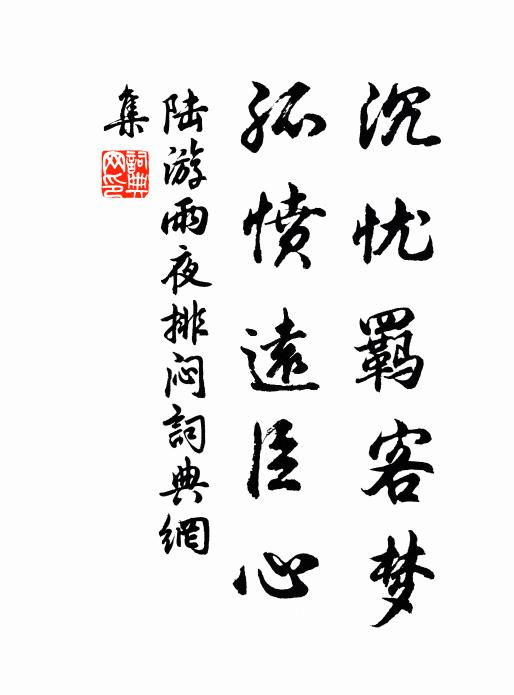 沉忧羁客梦
孤愤遠臣心
陆游雨夜排闷詞典網
集
詞典
网印